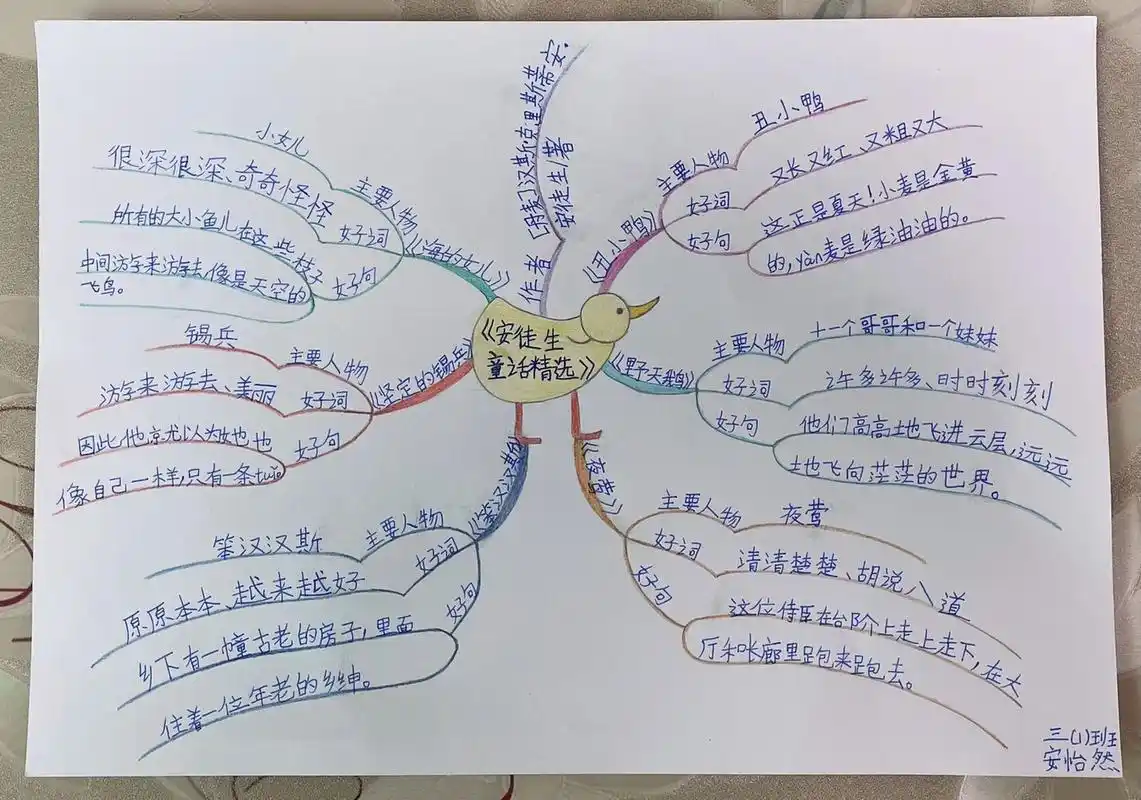 《安徒生
童话精选》
作者
[丹麦]汉斯·克里斯蒂安·
安徒生/著
《丑小鸭》
主要人物
丑小鸭
好词
又长又红、又粗又大
好句
这正是夏天!小麦是金黄
的,yàn麦是绿油油的。
《野天鹅》
主要人物
十一个哥哥和一个妹妹
好词
许多许多、时时刻刻
好句
他们高高地飞进云层,远远
地飞向茫茫的世界。
《夜莺》
主要人物
夜莺
好词
清清楚楚、胡说八道
好句
这位侍臣在台阶上走上走下,在大
厅和长廊里跑来跑去。
《笨汉汉斯》
主要人物
笨汉汉斯
好词
原原本本、越来越好
好句
乡下有一幢古老的房子,里面
住着一位年老的乡绅。
《坚定的锡兵》
主要人物
锡兵
好词
游来游去、美丽
好句
因此,他就以为她也
像自己一样,只有一条tuǐ。
《海的女儿》
主要人物
小女儿
好词
很深很深、奇奇怪怪
好句
所有的大小鱼儿在这些枝子
中间游来游去,像是天空的
飞鸟。
三(1)班
安怡然